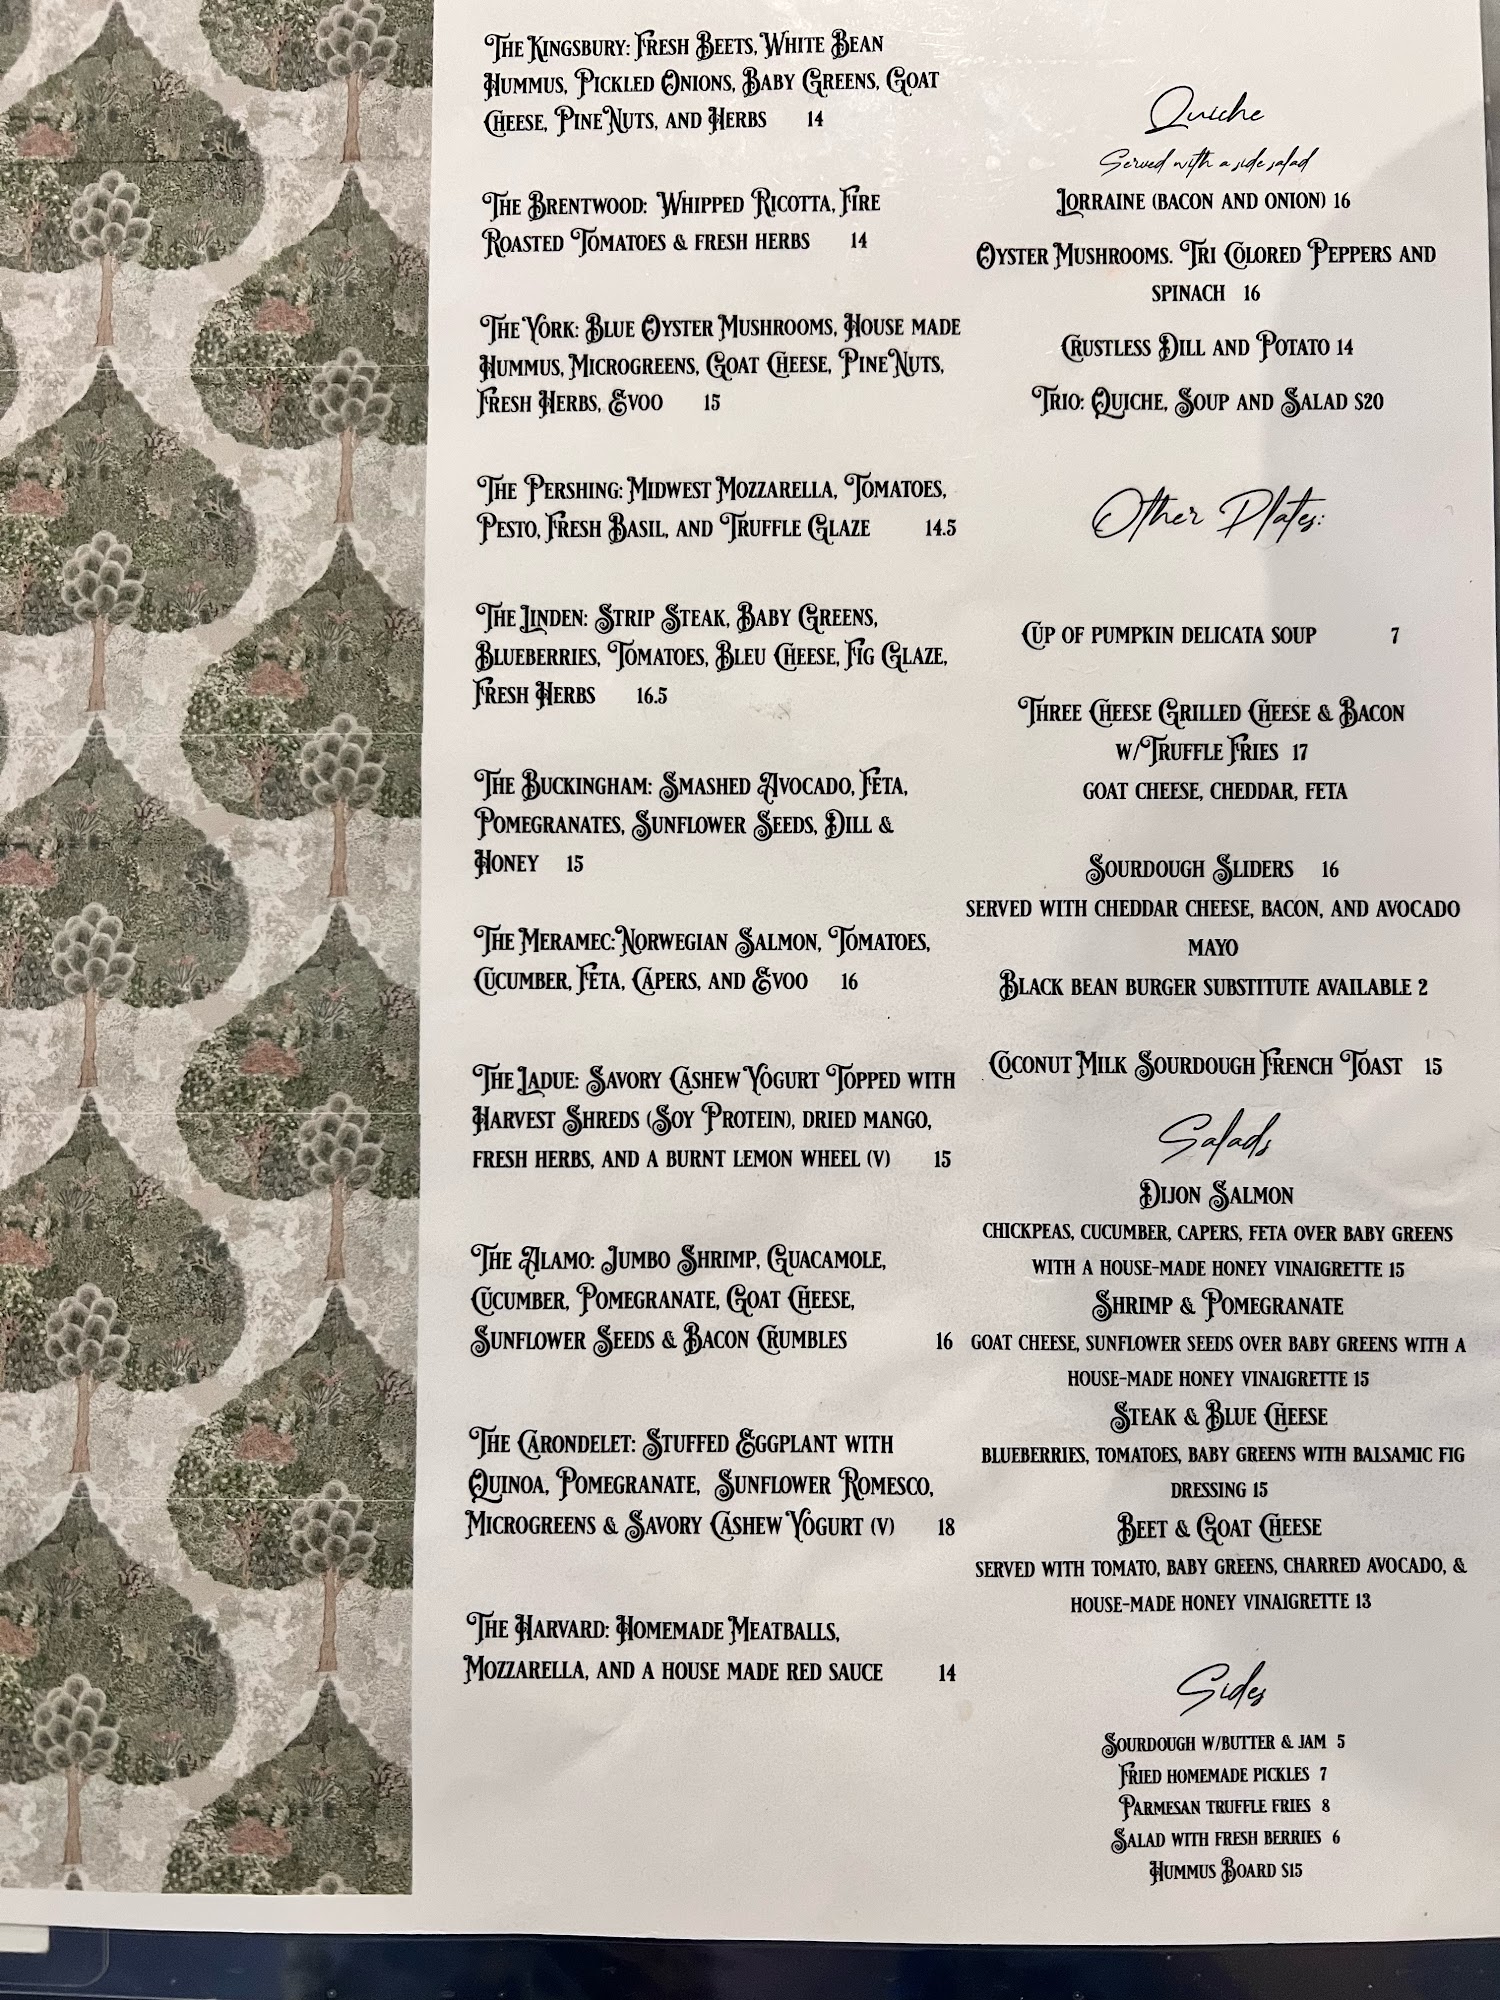 The Kingsbury: Fresh Beets, White Bean
Hummus, Pickled Onions, Baby Greens, Goat
Cheese, Pine Nuts, and Herbs 14
The Brentwood: Whipped Ricotta, Fire
Roasted Tomatoes & fresh herbs 14
The York: Blue Oyster Mushrooms, House made
Hummus, Microgreens, Goat Cheese, Pine Nuts,
Fresh Herbs, Evoo 15
The Pershing: Midwest Mozzarella, Tomatoes,
Pesto, Fresh Basil, and Truffle Glaze 14.5
The Linden: Strip Steak, Baby Greens,
Blueberries, Tomatoes, Bleu Cheese, Fig Glaze,
Fresh Herbs 16.5
The Buckingham: Smashed Avocado, Feta,
Pomegranates, Sunflower Seeds, Dill &
Honey 15
The Meramec: Norwegian Salmon, Tomatoes,
Cucumber, Feta, Capers, and Evoo 16
The Ladue: Savory Cashew Yogurt Topped with
Harvest Shreds (Soy Protein), dried mango,
fresh herbs, and a burnt lemon wheel (v) 15
The Alamo: Jumbo Shrimp, Guacamole,
Cucumber, Pomegranate, Goat Cheese,
Sunflower Seeds & Bacon Crumbles 16
The Carondelet: Stuffed Eggplant with
Quinoa, Pomegranate, Sunflower Romesco,
Microgreens & Savory Cashew Yogurt (v) 18
The Harvard: Homemade Meatballs,
Mozzarella, and a house made red sauce 14
Quiche
Served with a side salad
Lorraine (bacon and onion) 16
Oyster Mushrooms. Tri Colored Peppers and
spinach 16
Crustless Dill and Potato 14
Trio: Quiche, Soup and Salad $20
Other Plates:
Cup of pumpkin delicata soup 7
Three Cheese Grilled Cheese & Bacon
w/Truffle Fries 17
goat cheese, cheddar, feta
Sourdough Sliders 16
served with cheddar cheese, bacon, and avocado
mayo
Black bean burger substitute available 2
Coconut Milk Sourdough French Toast 15
Salads
Dijon Salmon
chickpeas, cucumber, capers, feta over baby greens
with a house-made honey vinaigrette 15
Shrimp & Pomegranate
goat cheese, sunflower seeds over baby greens with a
house-made honey vinaigrette 15
Steak & Blue Cheese
blueberries, tomatoes, baby greens with balsamic fig
dressing 15
Beet & Goat Cheese
served with tomato, baby greens, charred avocado, &
house-made honey vinaigrette 13
Sides
Sourdough w/butter & jam 5
Fried homemade pickles 7
Parmesan truffle fries 8
Salad with fresh berries 6
Hummus Board $15